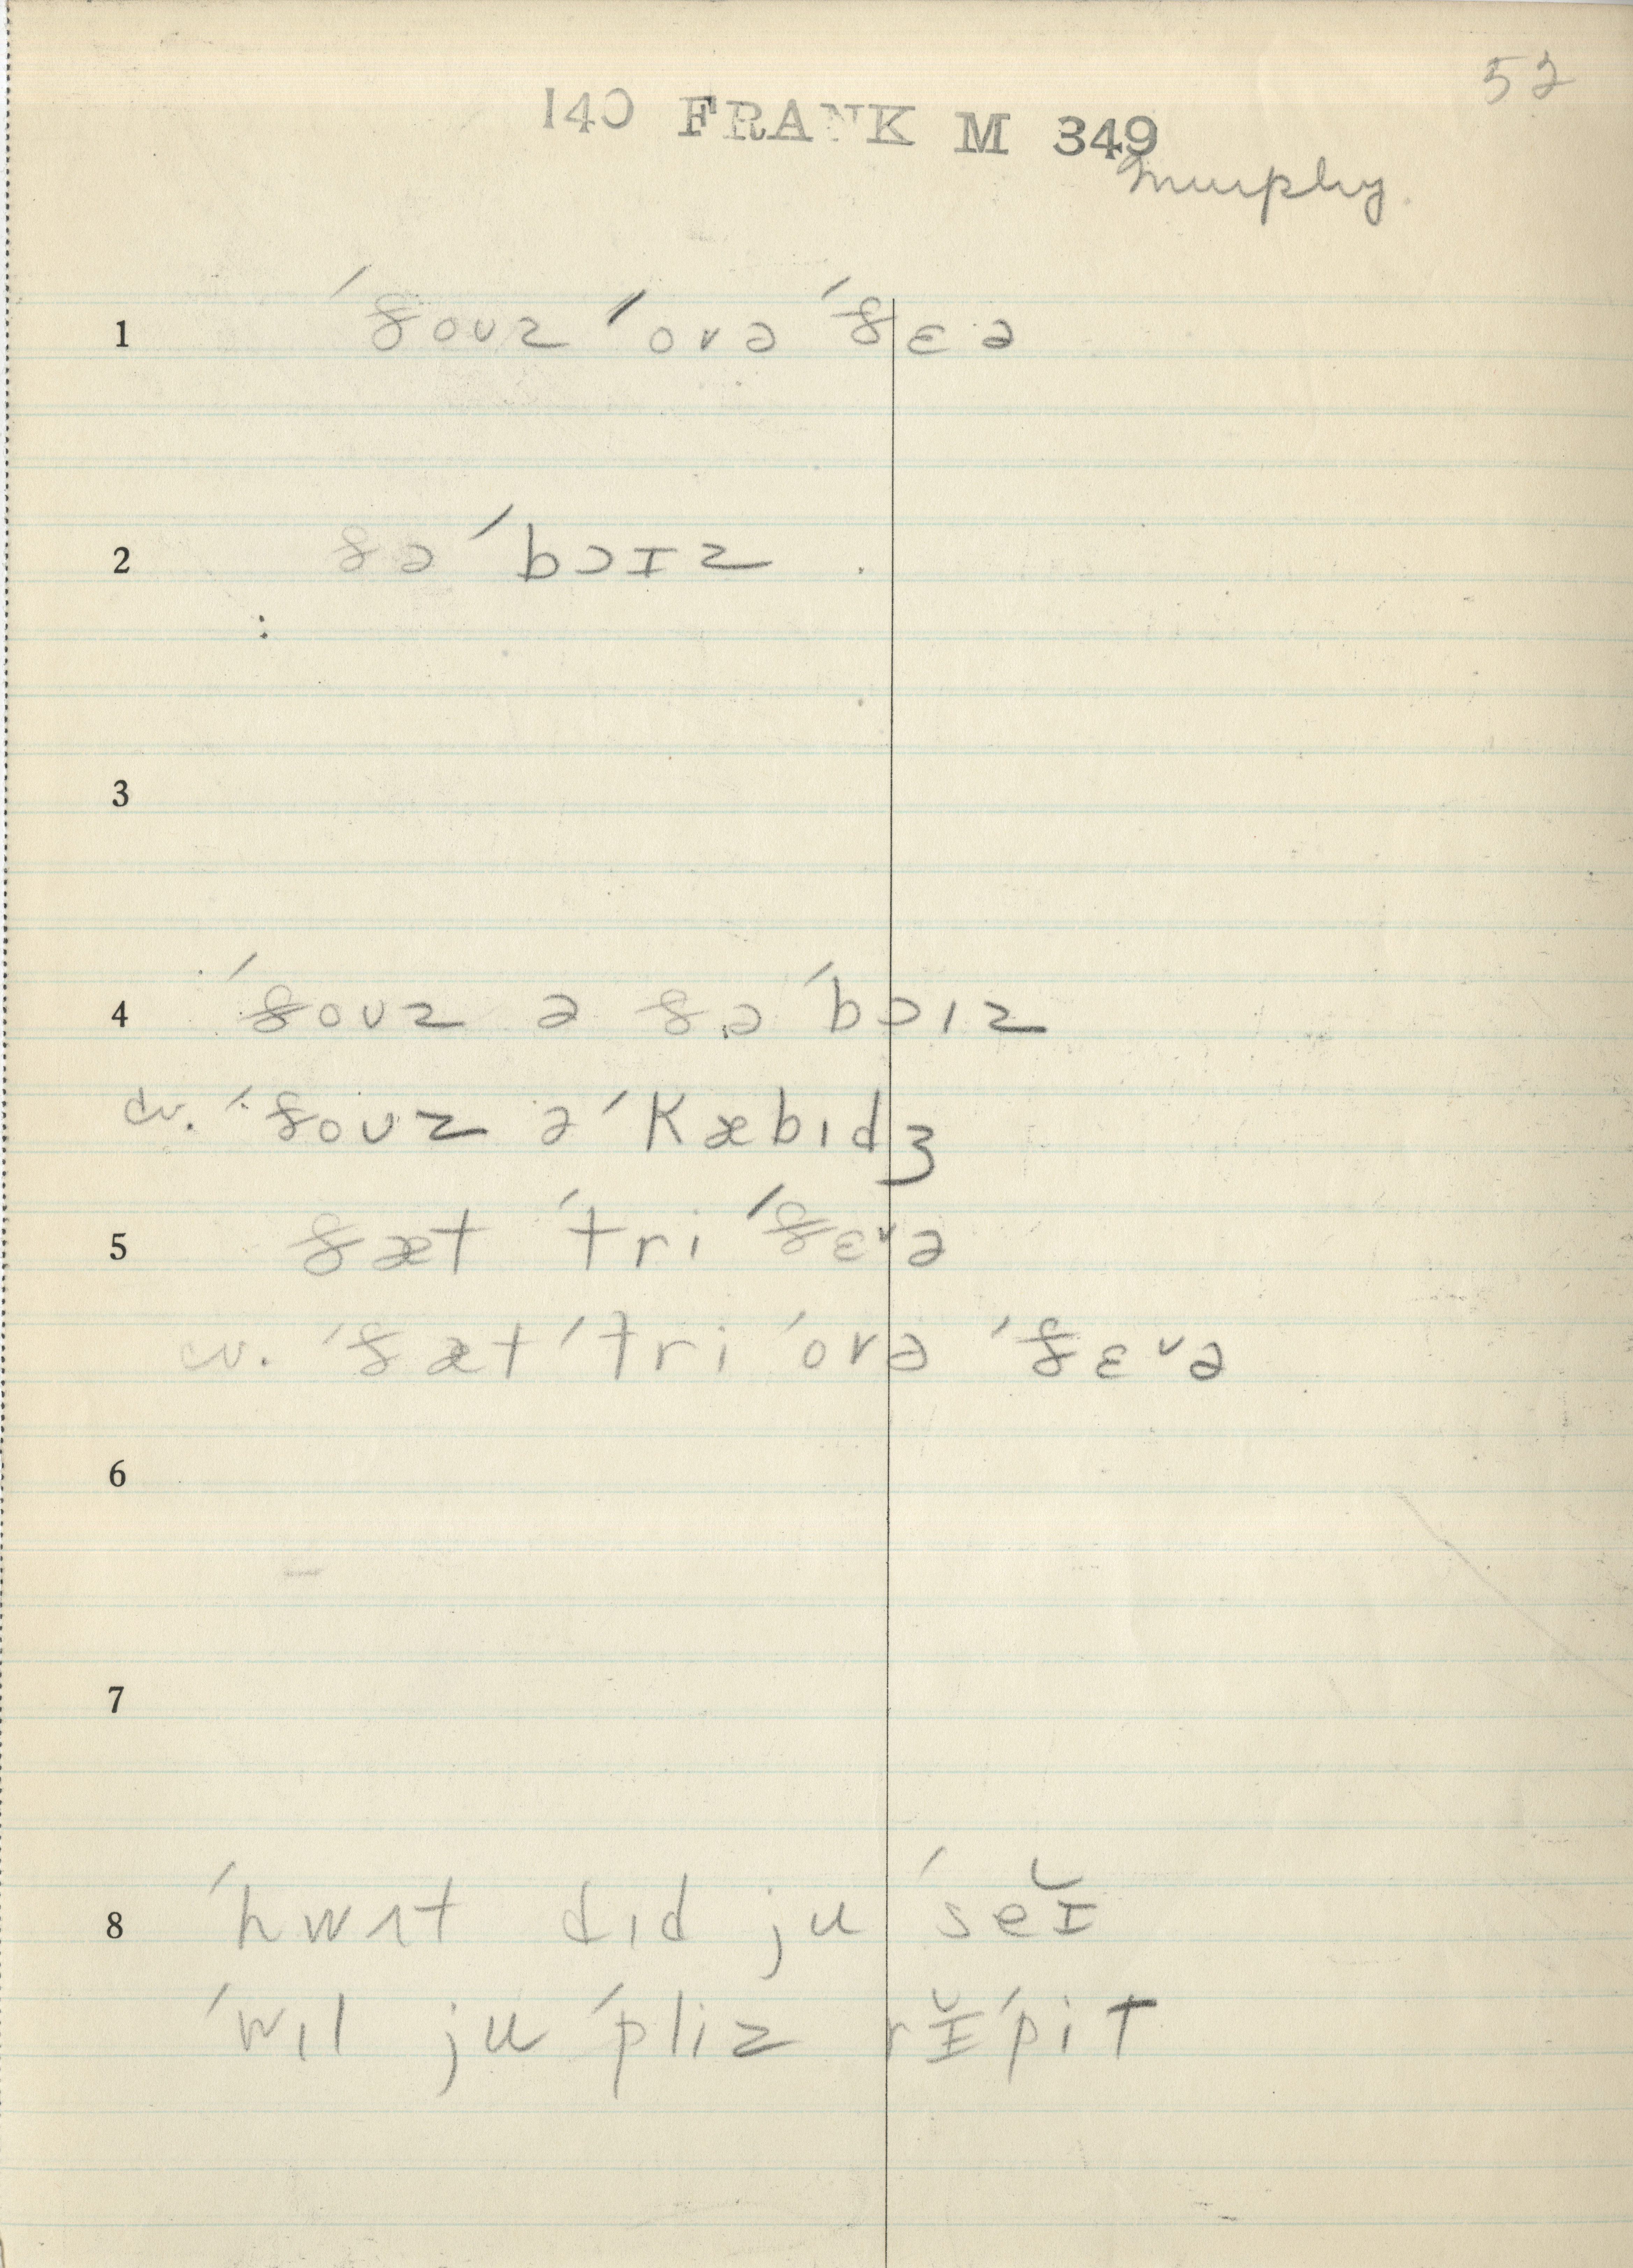 52
140 FRANK M 349
Murphy.
1 ˈðoʊz ˈovə ˈðɛə
2 ðə ˈbɔɪz
3
4 ˈðoʊz ə ðə ˈbɔɪz
w. ˈðoʊz ə ˈkæbɪdʒ
5 ðæt ˈtri ˈðɛᵛə
w. ˈðæt ˈtri ˈovə ˈðɛᵛə
6
7
8 ˈhwʌt dɪd ju ˈseɪ̆
ˈwɪl ju ˈpliz rɪ̆ˈpit